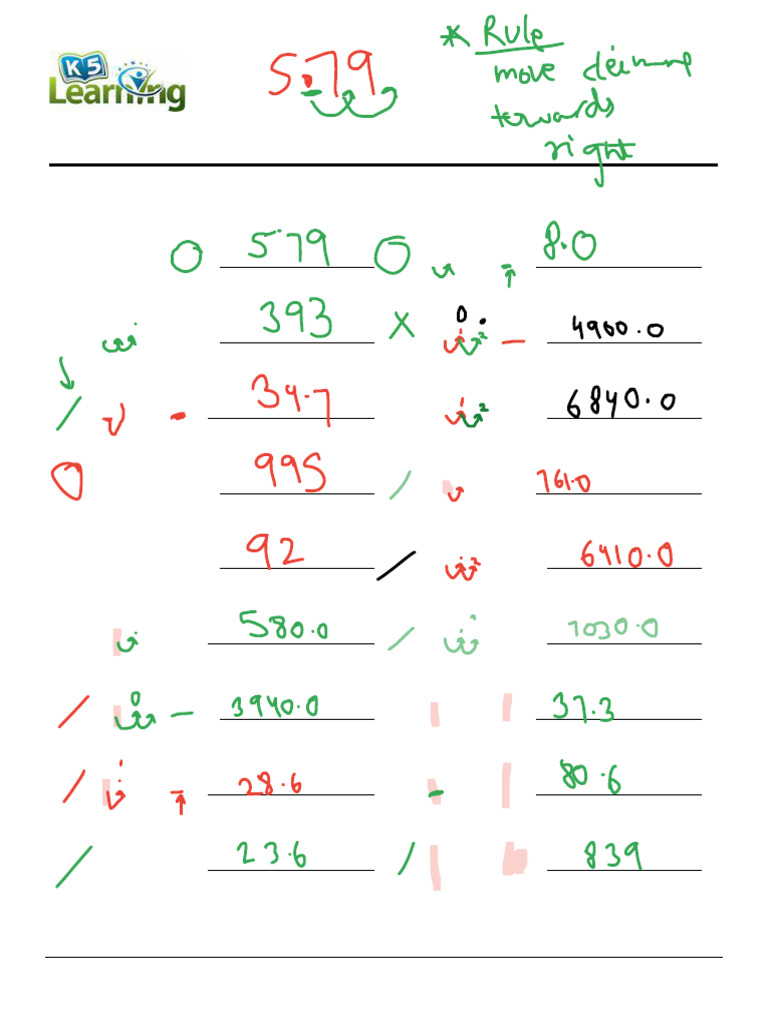 K5
Learning
5.79
* Rule
move
towards
right
579 8.0
393 4960.0
34.7 6840.0
995 761.0
92 6410.0
580.0 1030.0
3940.0 37.3
28.6 80.6
23.6 839